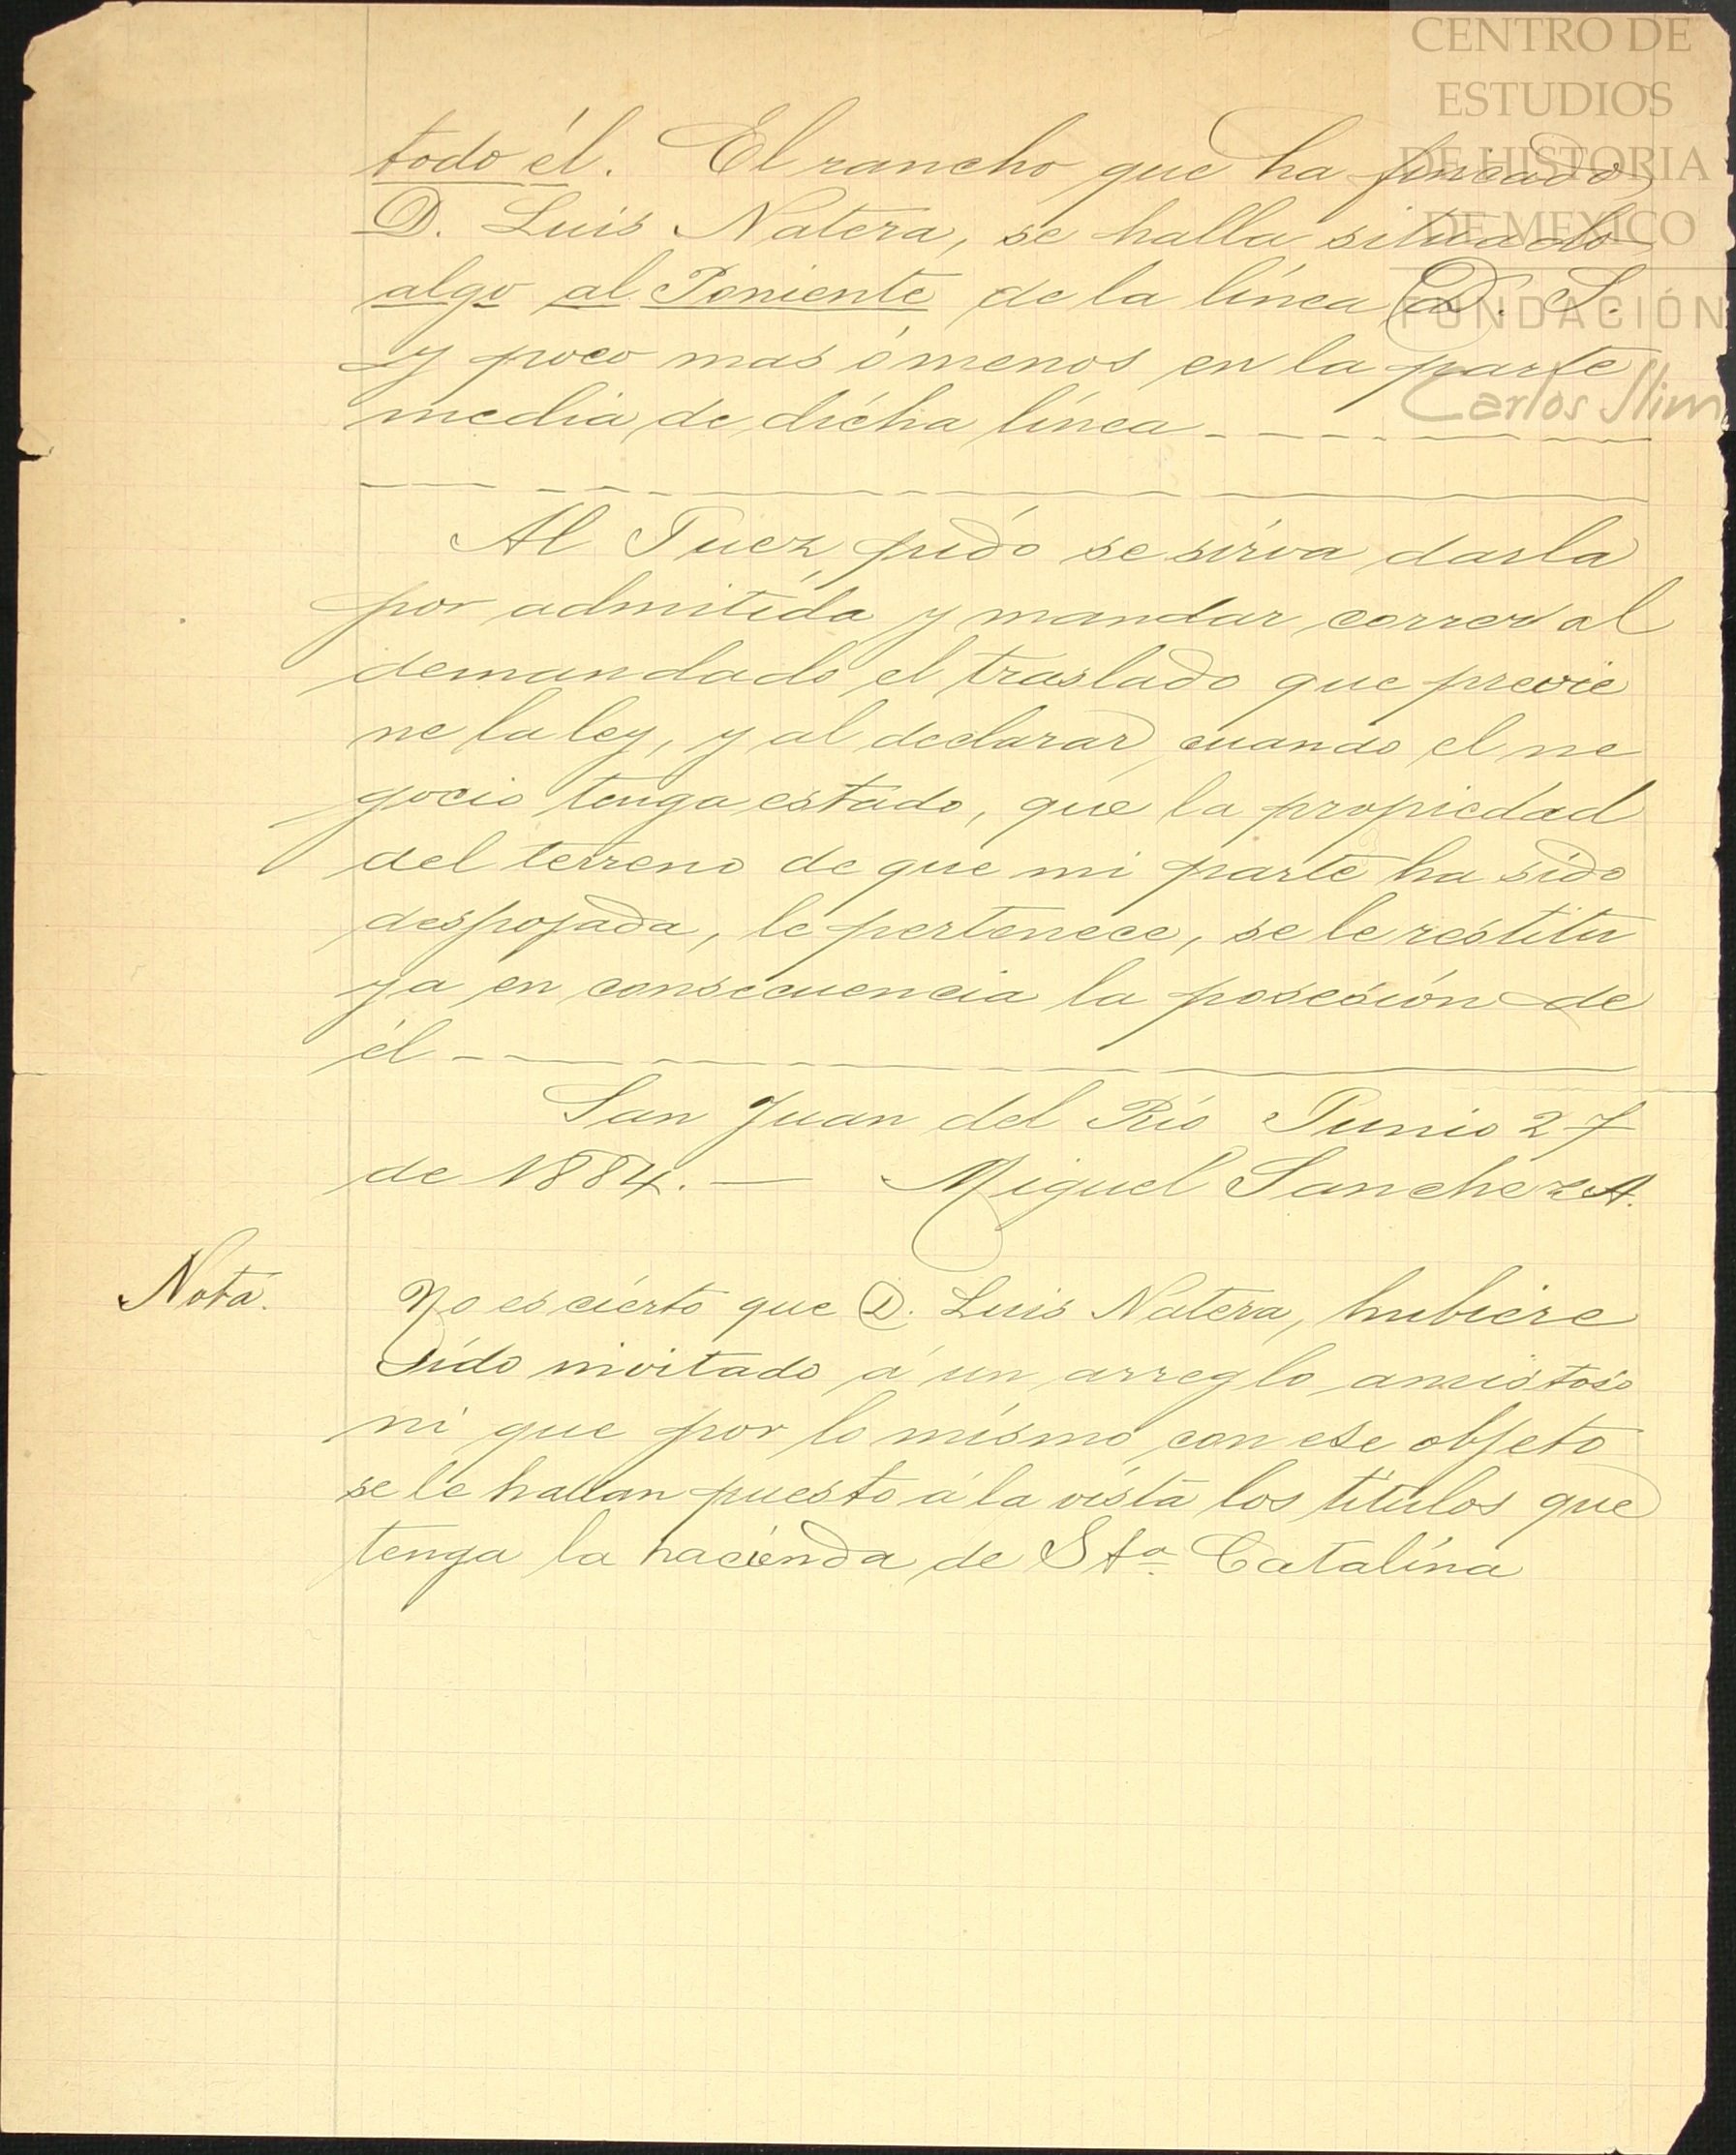 CENTRO DE
ESTUDIOS
DE HISTORIA
DE MEXICO
FUNDACIÓN
Carlos Slim
todo él. El rancho que ha fincado
D. Luis Natera, se halla situado
algo al Poniente de la línea D. S.
y poco mas ó menos en la parte
media de dicha línea
Al Juez pido se sirva darla
por admitida y mandar correr al
demandado el traslado que previe
ne la ley, y al declarar cuando el ne
gocio tenga estado, que la propiedad
del terreno de que mi parte ha sido
despojada, le pertenece, se le restitu
ya en consecuencia la posesión de
él
San Juan del Río Junio 27
de 1884. — Miguel Sanchez A.
Nota. No es cierto que D. Luis Natera, hubiere
sido invitado á un arreglo amistoso
ni que por lo mismo con ese objeto
se le hallan puesto á la vista los títulos que
tenga la hacienda de Sta. Catalina